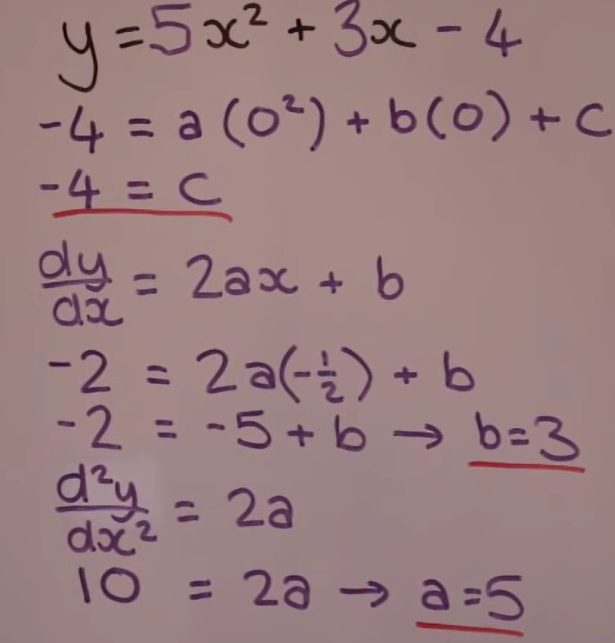 y = 5x² + 3x - 4
-4 = a(0²) + b(0) + c
-4 = c
dy/dx = 2ax + b
-2 = 2a(-½) + b
-2 = -5 + b → b=3
d²y/dx² = 2a
10 = 2a → a=5